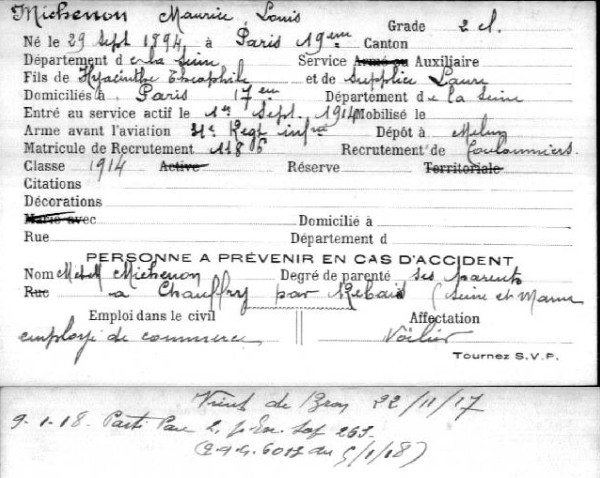 Michenon Maurice, Louis Grade 2 cl.
Né le 29 Sept 1894, à Paris 19em Canton
Département de la Seine Service Armé ou Auxiliaire
Fils de Hyacinthe Théophile et de Supplice Laure
Domiciliés à Paris 17em Département de la Seine
Entré au service actif le 1er Sept. 1914 Mobilisé le
Arme avant l'aviation 31e Regt infrie Dépôt à Melun
Matricule de Recrutement 1186 Recrutement de Coulommiers.
Classe 1914 Active Réserve Territoriale
Citations
Décorations
Marié avec Domicilié à
Rue Département d
PERSONNE A PRÉVENIR EN CAS D'ACCIDENT
Nom M et M Michenon Degré de parenté ses parents
Rue a Chauffry par Rebais (Seine et Marne
Emploi dans le civil Affectation
employé de commerce Voilier
Tournez S.V.P.
Vient de Bron 22/11/17
9-1-18. Parti Par 2. p. En. Sop 263.
(2-4-G. 6013 du 5/1/18)